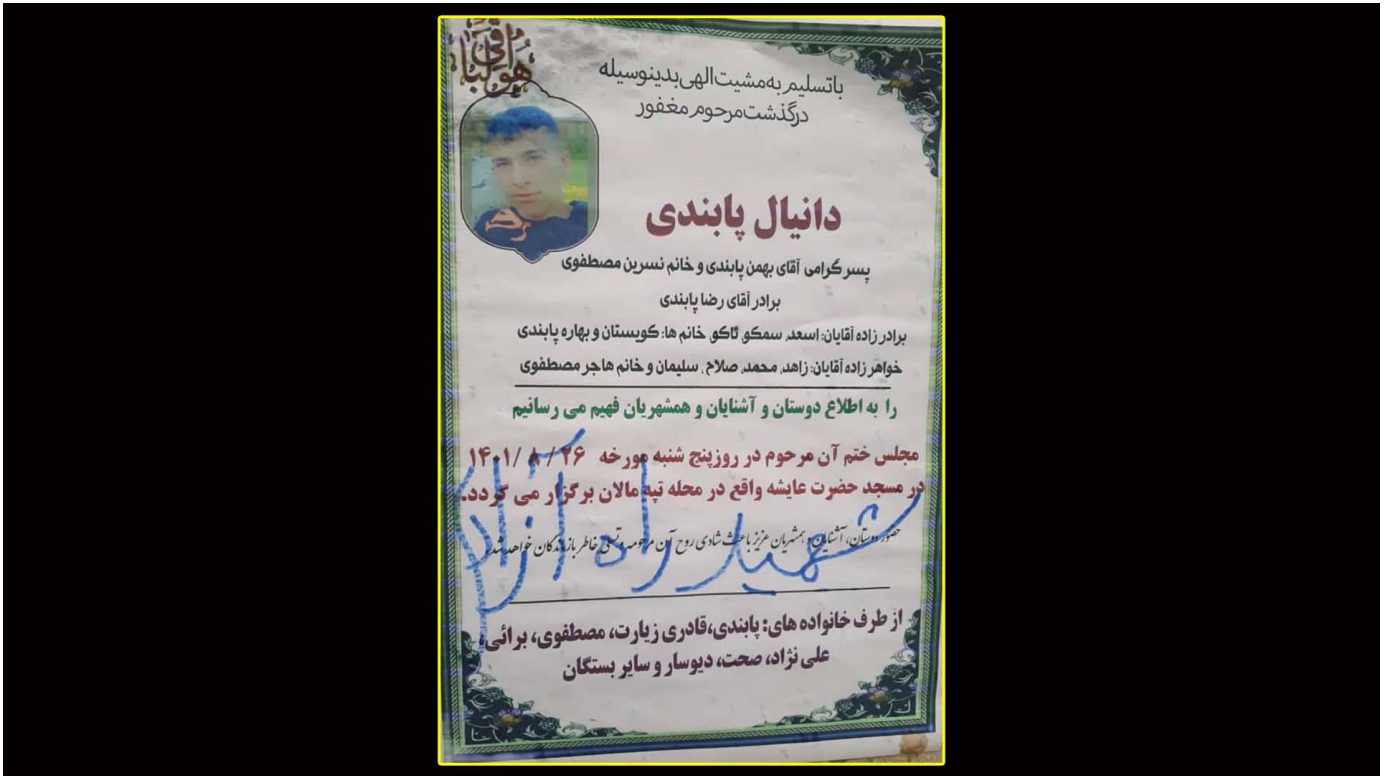 هوالباقی
با تسلیم به مشیت الهی بدینوسیله
درگذشت مرحوم مغفور
دانیال پابندی
پسر گرامی آقای بهمن پابندی و خانم نسرین مصطفوی
برادر آقای رضا پابندی
برادر زاده آقایان: اسعد، سمکو، ئاکو، خانم ها: کویستان و بهاره پابندی
خواهر زاده آقایان: زاهد، محمد، صلاح، سلیمان و خانم هاجر مصطفوی
را به اطلاع دوستان و آشنایان و همشهریان فهیم می رسانیم
مجلس ختم آن مرحوم در روز پنج شنبه مورخه ۱۴۰۱/۸/۲۶
در مسجد حضرت عایشه واقع در محله تپه مالان برگزار می گردد.
حضور دوستان، آشنایان و همشهریان عزیز باعث شادی روح آن مرحوم و تسلی خاطر بازماندگان خواهد شد.
شهید راه آزادی
از طرف خانواده های: پابندی، قادری زیارت، مصطفوی، برائی،
علی نژاد، صحت، دیوسار و سایر بستگان